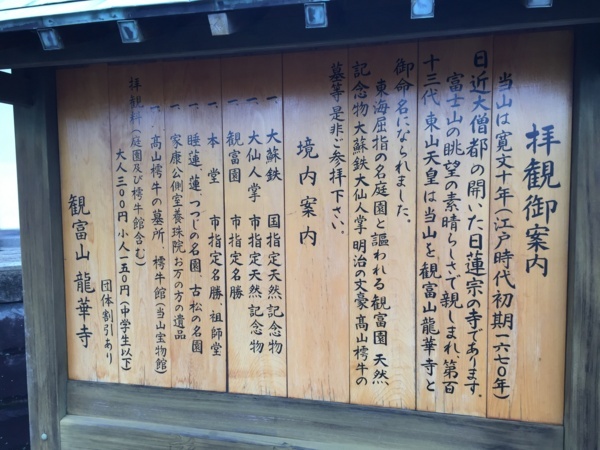 拝観御案内
当山は寛文十年(江戸時代初期一六七〇年)
日近大僧都の開いた日蓮宗の寺であります。
富士山の眺望の素晴らしさで親しまれ、第百
十三代 東山天皇は当山を 観富山龍華寺と
御命名になられました。
東海屈指の名庭園と謳われる観富園 天然
記念物大蘇鉄 大仙人掌 明治の文豪 高山樗牛の
墓等是非ご参拝下さい。
境内案内
一、大蘇鉄 国指定天然記念物
一、大仙人掌 市指定天然記念物
一、観富園 市指定名勝
一、本堂 市指定名勝・祖師堂
一、睡蓮、蓮、つつじの名園、古松の名園
家康公側室養珠院お万の方の遺品
一、高山樗牛の墓、樗牛館(当山宝物館)
拝観料(庭園及び樗牛館含む)
大人三〇〇円 小人一五〇円(中学生以下)
団体割引あり
観富山 龍華寺